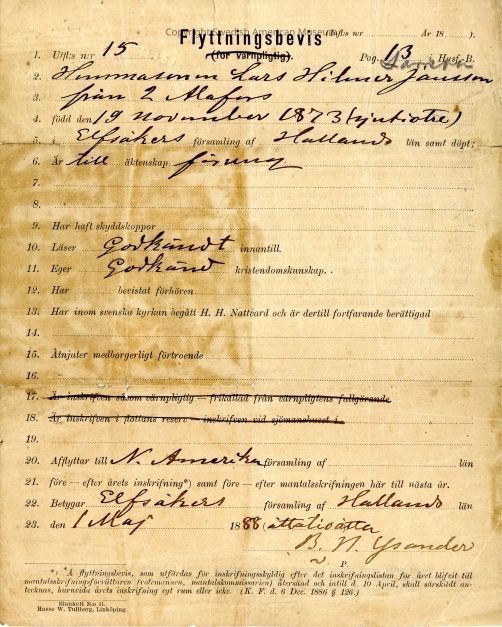 Copyright Swedish American Museum
Flyttningsbevis
(för värnpligtig).
(Infls n:r År 18 ).
1. Utfls n:r 15 Pag. 13 Husf. B.
2. Hemmasonen Lars Hilmer Jansson
3. från 2 Alafors
4. född den 19 november 1873 (sjutiotre)
5. i Elfsåkers församling af Hallands län samt döpt;
6. Är till äktenskap
7.
8.
9. Har haft skyddskoppor
10. Läser Godkändt innantill.
11. Eger Godkänd kristendomskunskap.
12. Har bevistat förhören.
13. Har inom svenska kyrkan begått H. H. Nattvard och är dertill fortfarande berättigad
14.
15. Åtnjuter medborgerligt förtroende
16.
17. Är inskrifven såsom värnpligtig — frikallad från värnpligtens fullgörande
18. Är inskrifven i flottans reserv — inskrifven vid sjömanshuset i
19.
20. Afflyttar till N. Amerika församling af län
21. före — efter årets inskrifning*) samt före — efter mantalsskrifningen här till nästa år.
22. Betygar Elfsåkers församling af Hallands län
23. den 1 Maj 1888 åttatioåtta
B. N. Ysander
P.
*) Å flyttningsbevis, som utfärdas för inskrifningsskyldig efter det inskrifningslistan för året blifvit till
mantalsskrifningsförrättaren (kronolänsman, mantalskommissarien) återsänd och intill d. 10 April, skall särskildt an-
tecknas, huruvida årets inskrifning egt rum eller icke. (K. F. d. 6 Dec. 1886 § 126.)
Blankett N:o 31.
Hasse W. Tullberg, Linköping.